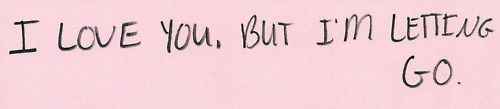 I LOVE YOU. BUT I'M LETTING
GO.